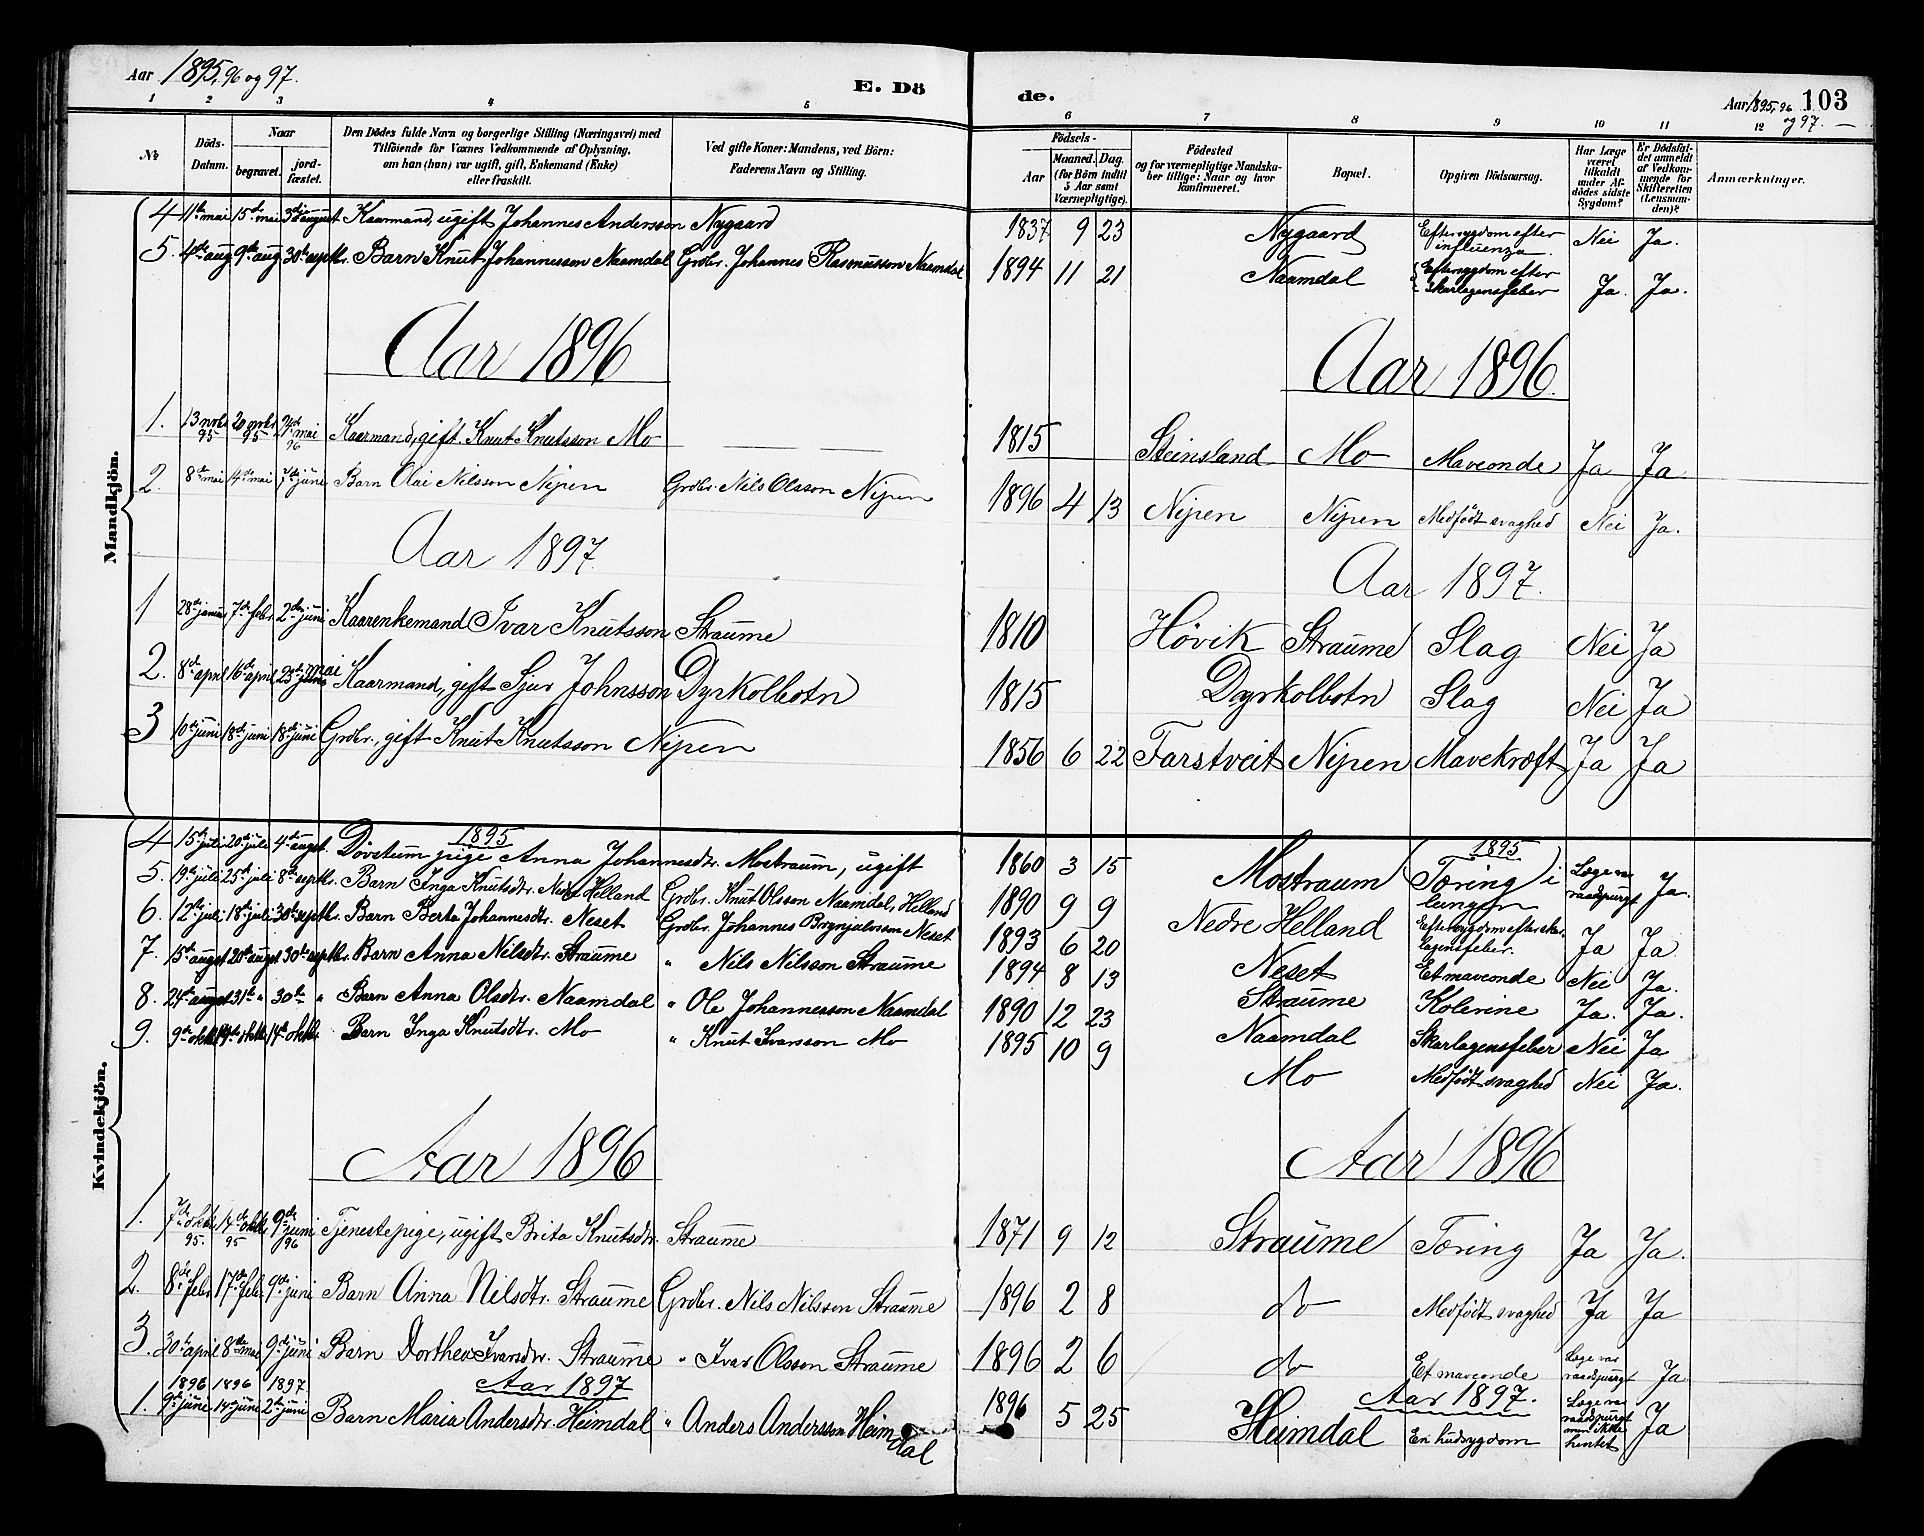 Aar 1895, 96 og 97.
E. Döde.
Aar 1895, 96 og 97. 103
1 2 3 4 5 6 7 8 9 10 11 12
No
Döds-Datum.
Naar begravet. jordfæstet.
Den Dödes fulde Navn og borgerlige Stilling (Næringsvei) med Tilföiende for Voxnes Vedkommende af Oplysning, om han (hun) var ugift, gift, Enkemand (Enke) eller fraskilt.
Ved gifte Koner: Mandens, ved Börn: Faderens Navn og Stilling.
Födsels- Aar Maaned. Dag. (for Börn indtil 5 Aar samt Værnepligtige).
Födested og for værnepligtige Mandskaber tillige: Naar og hvor konfirmeret.
Bopæl.
Opgiven Dödsaarsag.
Har Læge været tilkaldt under Afdödes sidste Sygdom?
Er Dödsfaldet anmeldt af Vedkommende for Skifteretten (Lensmanden)?
Anmærkninger.
Mandkjön.
4 11te mai 15de mai 3die august Kaarmand, ugift Johannes Andersson Nygaard 1837 9 23 Nygaard Eftersygdom efter influenza Nei Ja.
5. 4de aug 9de aug 30te septbr. Barn Knut Johannesson Naamdal Grdbr. Johannes Rasmusson Naamdal 1894 11 21 Naamdal Eftersygdom efter Skarlagensfeber Ja. Ja.
Aar 1896 Aar 1896.
1. 13 novbr 95 20 novbr 95 24de mai 96 Kaarmand, gift Knut Knutsson Mo 1815 Steinsland Mo Maveonde Ja Ja
2. 8de mai 14de mai 7de juni Barn Olai Nilsson Nipen Grdbr. Nils Olsson Nipen 1896 4 13 Nipen Nipen Medfødt svaghed Nei Ja.
Aar 1897. Aar 1897.
1 28de januar 7de febr 2den juni Kaarenkemand Ivar Knutsson Straume 1810 Høvik Straume Slag Nei Ja
2. 8de april 16de april 23de mai Kaarmand, gift Sjur Johnsson Dyrkolbotn 1815 Dyrkolbotn Slag Nei Ja
3 10de juni 18de juni 18de juni Grdbr., gift Knut Knutsson Nipen 1856 6 22 Farstveit Nipen Mavekræft Ja Ja
Kvindekjön.
1895 1895
4 15de juli 20de juli 4de augst. Døvstum pige Anna Johannesdtr. Mostraum, ugift 1860 3 15 Mostraum Tæring i lungen Læge var raadspurgt Ja.
5. 19de juli 25de juli 8de septbr. Barn Inga Knutsdtr. Nedre Helland Grdbr. Knut Olsson Naamdal, Helland 1890 9 9 Nedre Helland Eftersygdom efter skarlagensfeber. Ja Ja
6. 12te juli 18de juli 30te septbr. Barn Berta Johannesdtr. Neset Grdbr. Johannes Brynjulvsson Neset 1893 6 20 Neset Et maveonde Nei Ja.
7. 15de augst 20de augst 30te septbr. Barn Anna Nilsdtr. Straume " Nils Nilsson Straume 1894 8 13 Straume Kolerine Ja. Ja.
8. 24de augst 31te " 30te " Barn Anna Olsdtr. Naamdal " Ole Johannesson Naamdal 1890 12 23 Naamdal Skarlagensfeber Nei Ja
9. 9de oktbr 14de oktbr 14de oktbr. Barn Inga Knutsdtr. Mo " Knut Ivarsson Mo 1895 10 9 Mo Medfødt svaghed Nei Ja.
Aar 1896 Aar 1896
1. 7de oktbr. 95. 14de oktbr 95 9de juni 96 Tjenestepige, ugift Brita Knutsdtr. Straume 1871 9 12 Straume Tæring Ja Ja.
2. 8de febr 17de febr. 9de juni Barn Anna Nilsdtr. Straume Grdbr. Nils Nilsson Straume 1896 2 8 do Medfødt svaghed Ja Ja
3. 30te april 8de mai 9de juni Barn Dorthea Ivarsdtr. Straume " Ivar Olsson Straume 1896 2 6 do Et maveonde Læge var raadspurgt Ja
1896 1896 1897 Aar 1897 Aar 1897.
1. 9de june 14de juni 2den juni Barn Maria Andersdtr. Heimdal " Anders Andersson Heimdal 1896 5 25 Heimdal En hudsygdom Læge var raadspurgt men ikke hentet Ja